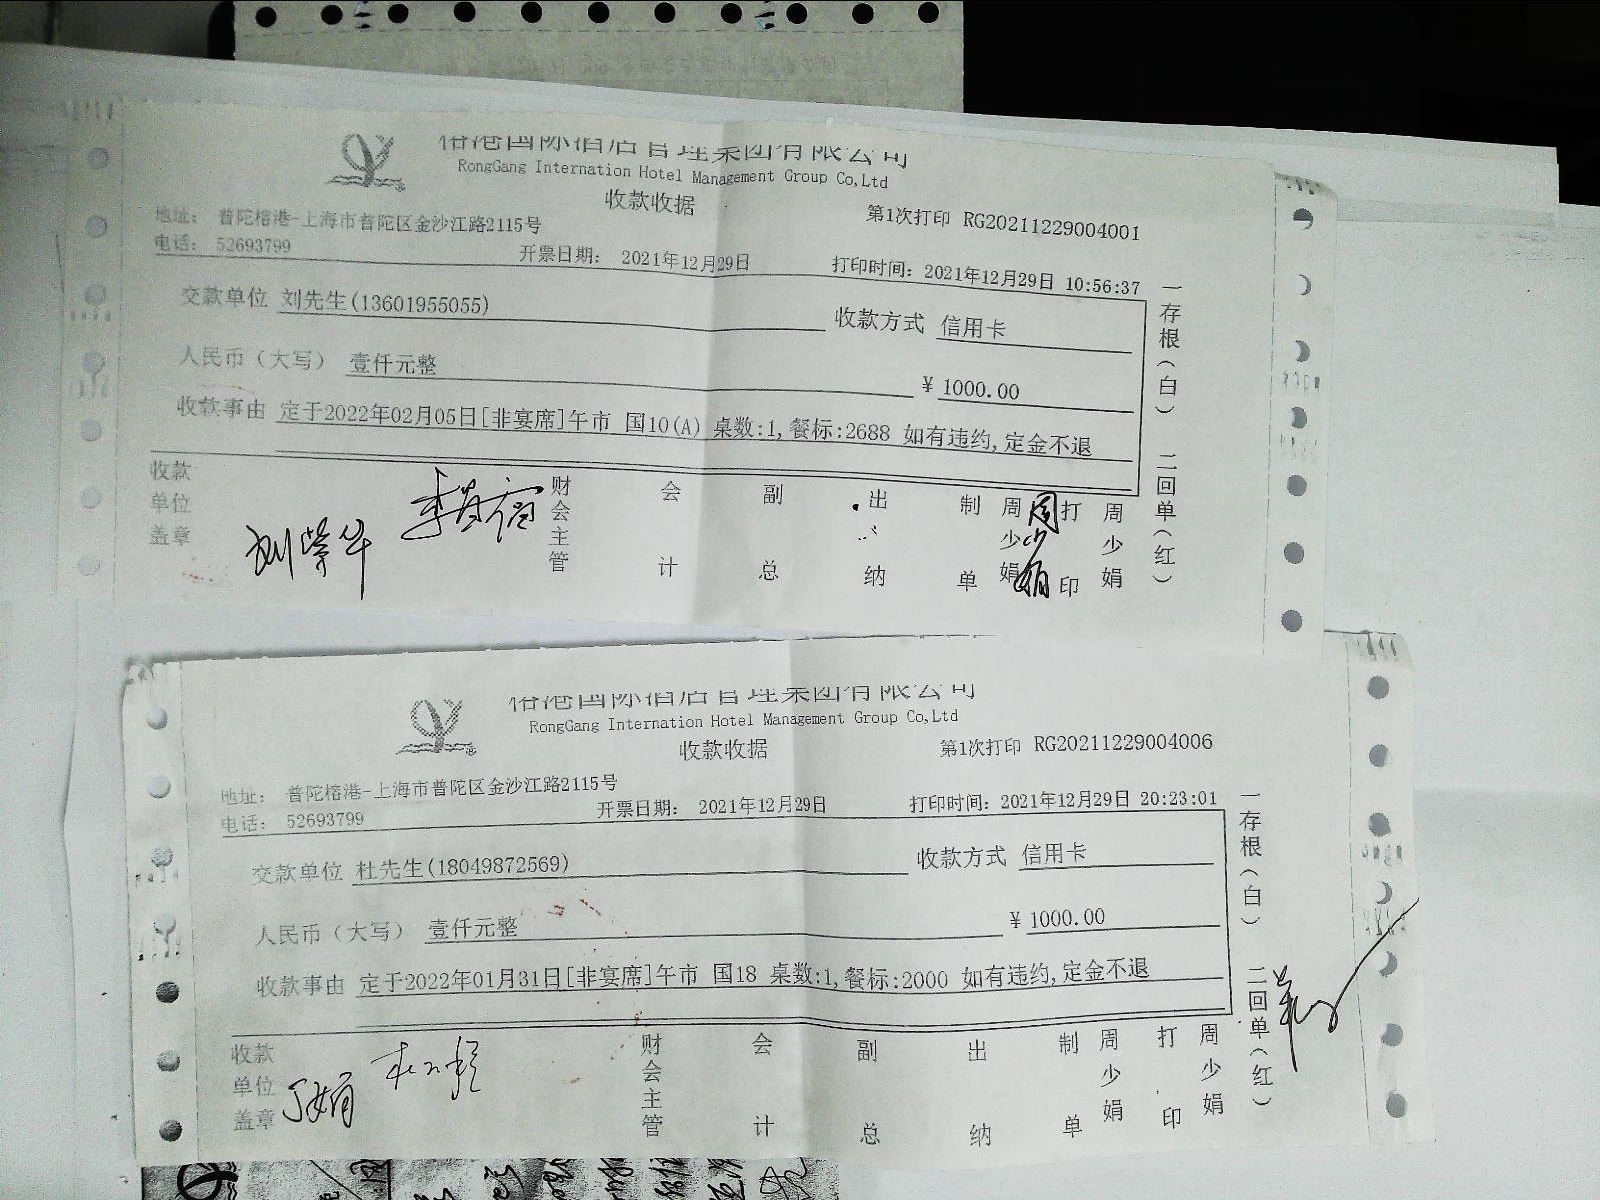 榕港国际酒店管理集团有限公司
RongGang Internation Hotel Management Group Co,Ltd
收款收据
第1次打印 RG20211229004001
地址: 普陀榕港-上海市普陀区金沙江路2115号
电话: 52693799
开票日期: 2021年12月29日
打印时间: 2021年12月29日 10:56:37
交款单位 刘先生(13601955055)
收款方式 信用卡
人民币（大写） 壹仟元整
¥ 1000.00
收款事由 定于2022年02月05日[非宴席]午市 国10(A) 桌数:1,餐标:2688 如有违约,定金不退
一存根(白) 二回单(红)
收款单位盖章
刘荣华
财会主管 会计 副总 出纳 制单 周少娟 周少娟 打印 周少娟
榕港国际酒店管理集团有限公司
RongGang Internation Hotel Management Group Co,Ltd
收款收据
第1次打印 RG20211229004006
地址: 普陀榕港-上海市普陀区金沙江路2115号
电话: 52693799
开票日期: 2021年12月29日
打印时间: 2021年12月29日 20:23:01
交款单位 杜先生(18049872569)
收款方式 信用卡
人民币（大写） 壹仟元整
¥ 1000.00
收款事由 定于2022年01月31日[非宴席]午市 国18 桌数:1,餐标:2000 如有违约,定金不退
一存根(白) 二回单(红)
收款单位盖章
财会主管 会计 副总 出纳 制单 周少娟 打印 周少娟